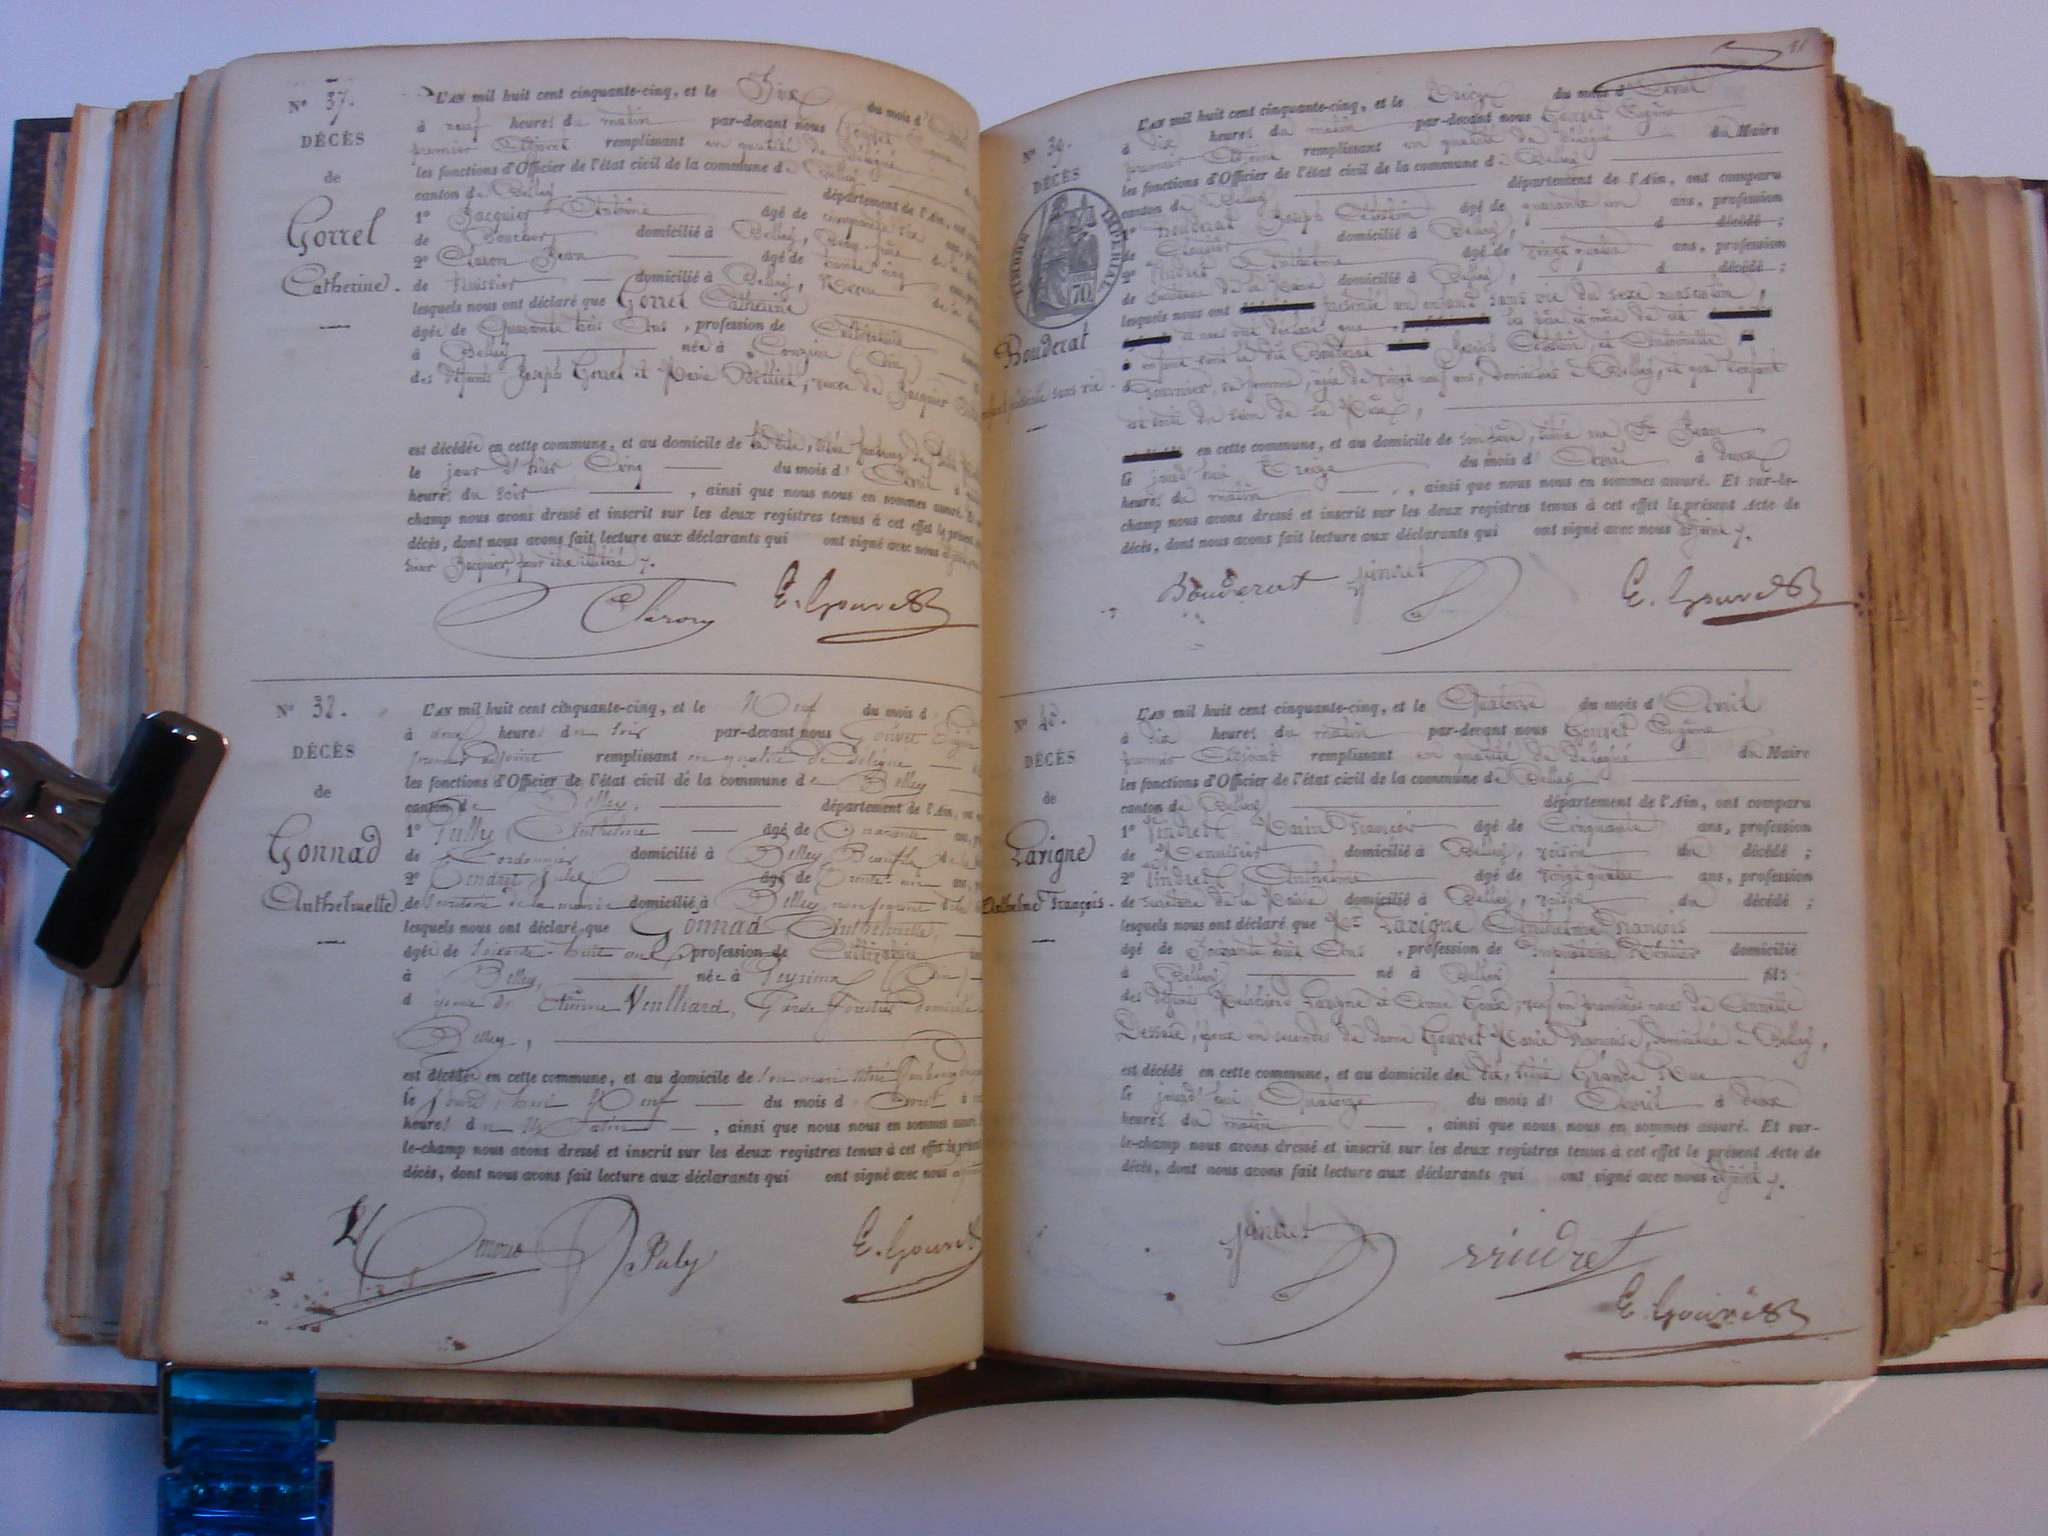 N° 37.
DÉCÈS
de
Gorrel
Catherine.
L'AN mil huit cent cinquante-cinq, et le Six du mois d'
à neuf heures du matin par-devant nous Gouvet
premier Adjoint remplissant en qualité de Délégué
les fonctions d'Officier de l'état civil de la commune de Belley
canton de Belley département de l'Ain, ont
1° Jacquier Antoine âgé de cinquante six
de domicilié à Belley,
2° Claron Jean âgé de
de huissier domicilié à Belley,
lesquels nous ont déclaré que Gorrel Catherine
âgée de Quarante trois Ans, profession de
à Belley née à Conzieu (Ain)
des défunts Joseph Gorrel et Marie
est décédée en cette commune, et au domicile de
le jour d'hier Cinq du mois d' Avril
heures du soir, ainsi que nous nous en sommes assuré.
champ nous avons dressé et inscrit sur les deux registres tenus à cet effet le présent
décès, dont nous avons fait lecture aux déclarants qui ont signé avec nous
sieur Jacquier, pour être illétré
Claron E. Gouvet
N° 38.
DÉCÈS
de
Gonnad
Anthelmette
L'AN mil huit cent cinquante-cinq, et le Neuf du mois d'
à deux heures du soir par-devant nous Gouvet
premier adjoint remplissant en qualité de Délégué
les fonctions d'Officier de l'état civil de la commune de Belley
canton de Belley, département de l'Ain,
1° Anthelme âgé de Quarante
de Cordonnier domicilié à Belley Beaufils
2° âgé de trente
de Secrétaire de la mairie domicilié à Belley non parent
lesquels nous ont déclaré que Gonnad Anthelmette,
âgée de soixante-huit ans profession de Cultivatrice
à Belley, née à Peyrieux (Ain)
épouse de Etienne Veulliard, Garde forestier domicilié
Belley,
est décédée en cette commune, et au domicile de son mari situé faubourg
le jourd'hui Neuf du mois d' Avril
heures du Matin, ainsi que nous nous en sommes assuré.
le-champ nous avons dressé et inscrit sur les deux registres tenus à cet effet le présent
décès, dont nous avons fait lecture aux déclarants qui ont signé avec nous
E. Gouvet
N° 39.
DÉCÈS
TIMBRE IMPÉRIAL
70
Bouderat
sans vie
L'AN mil huit cent cinquante-cinq, et le Treize du mois d' Avril
à dix heures du matin par-devant nous Gouvet Eugène
premier Adjoint remplissant en qualité de Délégué du Maire
les fonctions d'Officier de l'état civil de la commune de Belley
canton de Belley département de l'Ain, ont comparu
1° Bouderat Joseph Célestin âgé de quarante un ans, profession
de domicilié à Belley, d décédé ;
2° Vindret Anthelme âgé de vingt quatre ans, profession
de Secrétaire de la Mairie domicilié à Belley, d décédé ;
lesquels nous ont présenté un enfant sans vie du sexe masculin,
et nous ont déclaré que, les père et mère de cet
enfant sont le dit Bouderat Joseph Célestin et Antoinette
sa femme, âgée de vingt neuf ans, domiciliés à Belley, et que l'enfant
est sorti du sein de la Mère,
en cette commune, et au domicile de son père, situé rue St Jean
le jourd'hui Treize du mois d' Avril à deux
heures du matin, ainsi que nous nous en sommes assuré. Et sur-le-
champ nous avons dressé et inscrit sur les deux registres tenus à cet effet le présent Acte de
décès, dont nous avons fait lecture aux déclarants qui ont signé avec nous adjoint
Bouderat Vindret E. Gouvet
N° 40.
DÉCÈS
de
Lavigne
Anthelme François.
L'AN mil huit cent cinquante-cinq, et le Quatorze du mois d' Avril
à dix heures du matin par-devant nous Gouvet Eugène
premier Adjoint remplissant en qualité de Délégué du Maire
les fonctions d'Officier de l'état civil de la commune de Belley
canton de Belley département de l'Ain, ont comparu
1° Vindrett François âgé de Cinquante ans, profession
de Menuisier domicilié à Belley, voisin du décédé ;
2° Vindrett Anthelme âgé de vingt quatre ans, profession
de Secrétaire de la Mairie domicilié à Belley, voisin du décédé ;
lesquels nous ont déclaré que Mr Lavigne Anthelme François
âgé de Soixante huit Ans, profession de Propriétaire Rentier domicilié
à Belley né à Belley fils
des défunts Lavigne et Anne veuf en premières noces de
époux en secondes de dame Gouvet Marie Françoise, domiciliée à Belley,
est décédé en cette commune, et au domicile du dit, situé Grande Rue
le jourd'hui Quatorze du mois d' Avril à deux
heures du matin, ainsi que nous nous en sommes assuré. Et sur-
le-champ nous avons dressé et inscrit sur les deux registres tenus à cet effet le présent Acte de
décès, dont nous avons fait lecture aux déclarants qui ont signé avec nous adjoint
Vindret Vindret
E. Gouvet